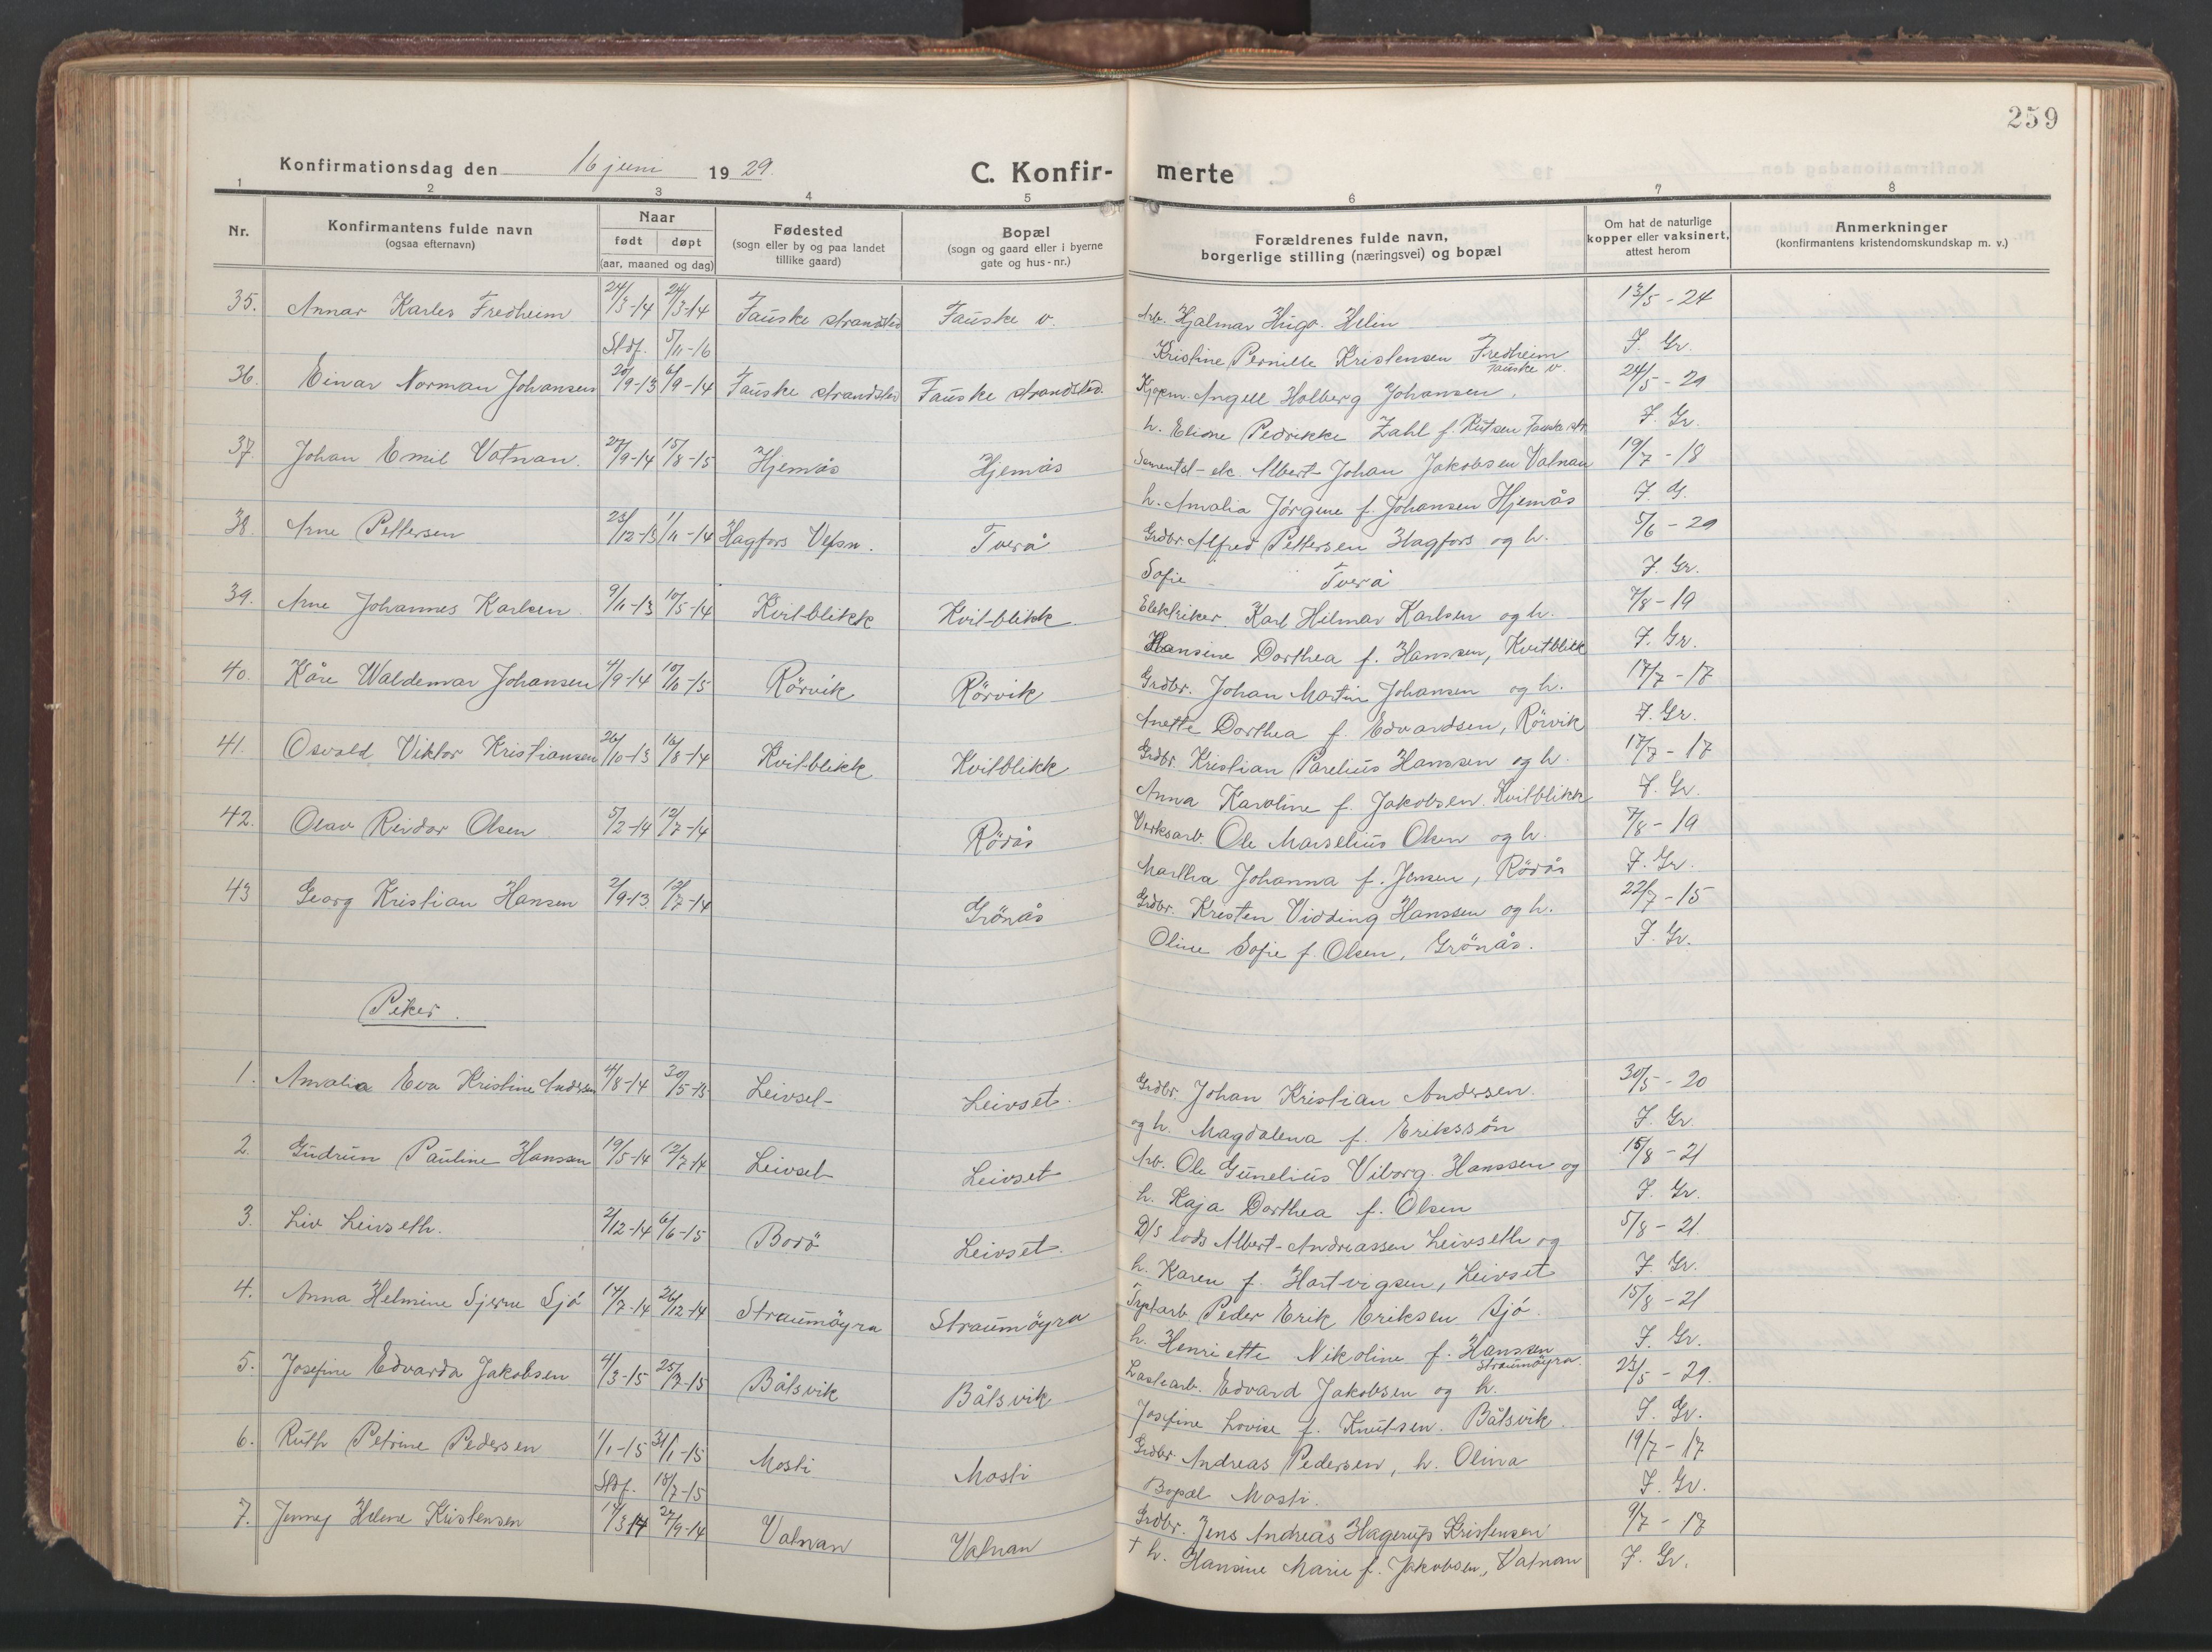 259
Konfirmationsdag den 16 juni 1929.
C. Konfirmerte
1 2 3 4 5 6 7 8
Nr.
Konfirmantens fulde navn
(ogsaa efternavn)
Naar
født døpt
(aar, maaned og dag)
Fødested
(sogn eller by og paa landet
tillike gaard)
Bopæl
(sogn og gaard eller i byerne
gate og hus-nr.)
Forældrenes fulde navn,
borgerlige stilling (næringsvei) og bopæl
Om hat de naturlige
kopper eller vaksinert,
attest herom
Anmerkninger
(konfirmantens kristendomskundskap m. v.)
35. Annar Karles Fredheim 24/3-14 24/3-14 Fauske strandsted Fauske v. Arb. Hjalmar Hugo Helin 13/5-24
Stdf. 5/11-16 Kristine Pernille Kristensen Fredheim J. Gr.
Fauske v.
36. Einar Norman Johansen 20/9-13 6/9-14 Fauske strandsted Fauske strandsted. Kjøpm. Angell Holberg Johansen. 24/5-29
h. Eline Pedrikke Zahl f. Knutsen Fauske str. J. Gr.
37. Johan Emil Vatnan. 27/9-14 15/8-15 Hjemås Hjemås Albert Johan Jakobsen Vatnan 19/7-18
h. Amalia Jørgine f. Johansen Hjemås J. G.
38. Arne Pettersen 23/12-13 1/11-14 Hagfors Vefsn. Tverå Grdbr Alfred Pettersen Hagfors og h. 5/6-29
Sofie Tverå J. Gr.
39. Arne Johannes Karlsen 9/11-13 10/5-14 Kvitblikk Kvitblikk Elektriker. Karl Hilmar Karlsen og h. 7/8-19
Hansine Dorthea f. Hanssen, Kvitblikk J. Gr.
40. Kåre Waldemar Johansen 4/9-14 10/10-15 Rörvik Rörvik Grdbr. Johan Martin Johansen og h. 17/7-17
Anette Dorthea f. Edvardsen, Rörvik J. Gr.
41. Osvald Viktor Kristiansen 26/10-13 16/8-14 Kvitblikk Kvitblikk Grdbr Kristian Parelius Hanssen og h. 17/7-17
Anna Karoline f. Jakobsen. Kvitblikk J. Gr.
42. Olav Reidar Olsen 5/2-14 12/7-14 Rödås Verksarb. Ole Marselius Olsen og h. 7/8-19
Martha Johanna f. Jensen, Rödås J. Gr.
43 Georg Kristian Hansen 2/9-13. 12/7-14 Grönås Grdbr. Kresten Vidding Hanssen og h. 22/7-15
Oline Sofie f. Olsen, Grönås. J. Gr.
Piker.
1. Amalia Eva Kristine Andersen 4/8-14 30/5-15 Leivset Leivset. Grdbr. Johan Kristian Andersen. 30/5-20
og h. Magdalena f. Erikssön J. Gr.
2. Gudrun Pauline Hansen 19/5-14 12/7-14 Leivset Leivset Arb. Ole Gunelius Viborg Hanssen og 15/8-21
h. Kaja Dorthea f. Olsen J. Gr.
3. Liv Leivseth. 2/12-14 6/6-15 Bodö Leivset. D/S lods Albert Andreassen Leivseth og 5/8-21
h. Karen f. Hartvigsen, Leivset J. Gr.
4. Anna Helmine Sjö 14/7-14 26/12-14 Straumöyra Straumöyra Peder Erik Eriksen Sjö. 15/8-21
h. Henriette Nikoline f. Hanssen J. Gr.
Straumöyra.
5. Josefine Edvarda Jakobsen 4/3-15 25/7-15 Båtsvik Båtsvik Lastearb. Edvard Jakobsen og h. 23/5-29.
Josefine Lovise f. Knutsen. Båtsvik. J. Gr.
6. Ruth Petrine Pedersen 1/1-15 31/1-15 Mosti Mosti Grdbr. Andreas Pedersen, h. Olina 19/7-17
Stdf. 18/7-15 Bopæl Mosti. J. Gr.
7. Jenny Helene Kristensen 17/3 14 27/9-14 Vatnan Vatnan Grdbr. Jens Andreas Hagerup Kristensen 9/7-17
† h. Hansine Marie f. Jakobsen, Vatnan J. Gr.